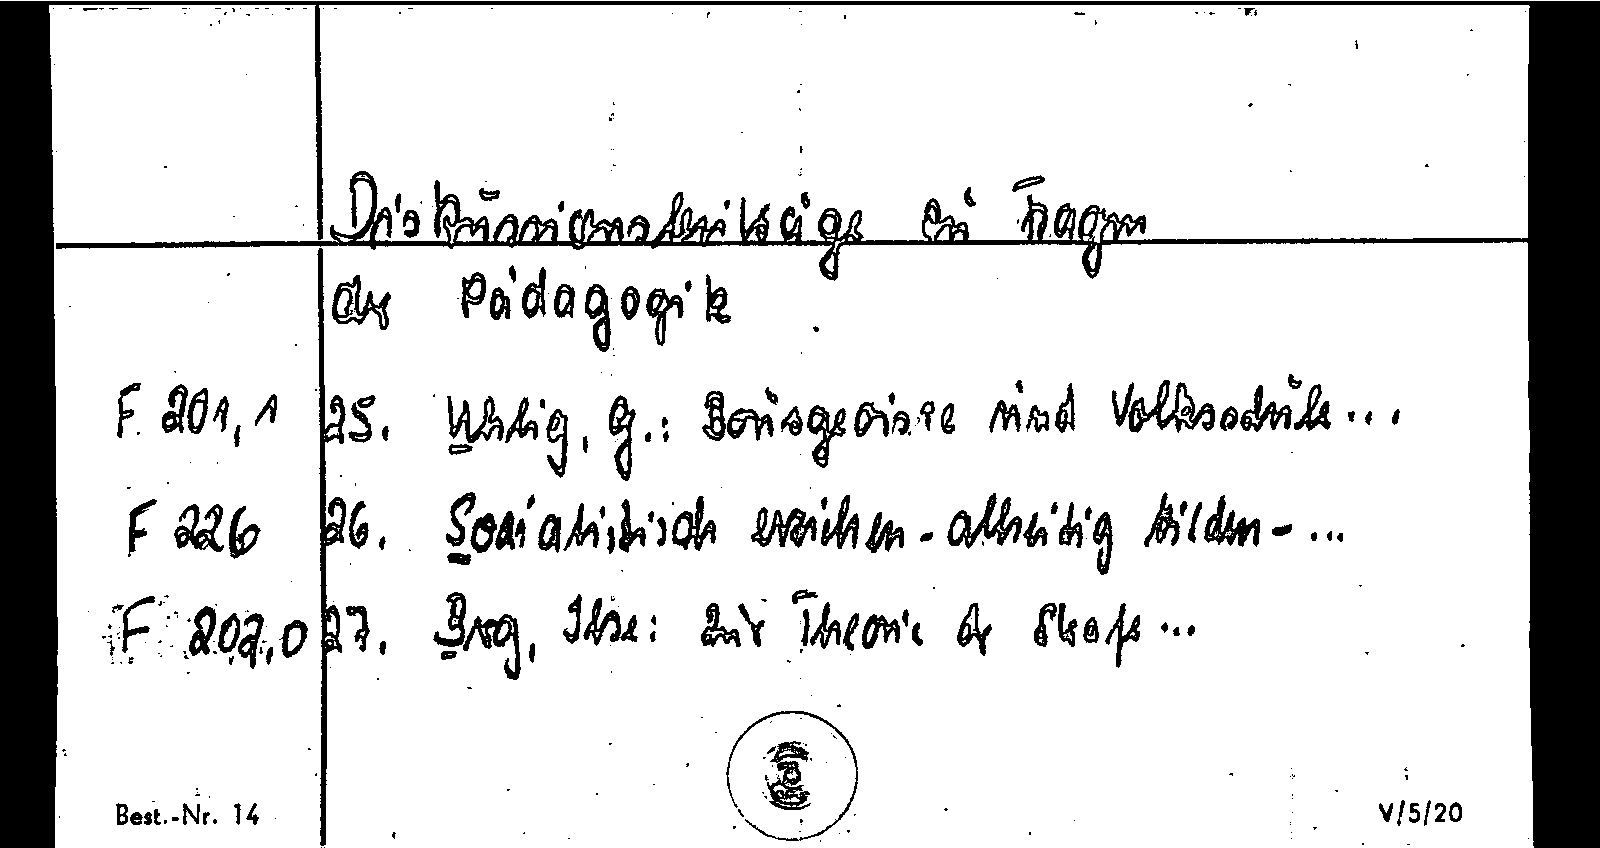 Diskussionsbeiträge zu Fragen
der Pädagogik
F 201,1 25. Uhlig, G.: Bourgeoisie und Volksschule...
F 226 26. Sozialistisch erziehen - allseitig bilden - ...
F 202,0 27. Ilse: Zur Theorie der Strafe...
Best.-Nr. 14 V/5/20